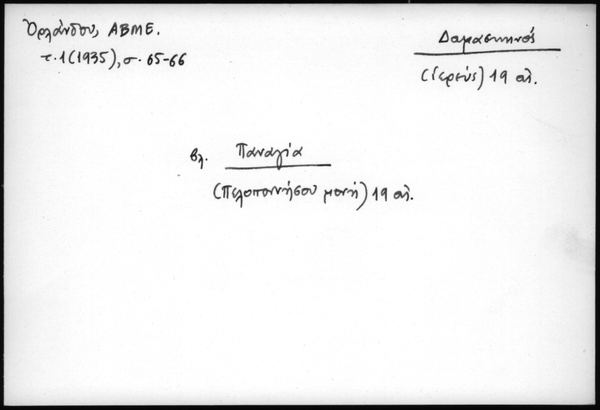 Ὀρλάνδου, ΑΒΜΕ.
τ.1(1935), σ. 65-66
Δαμασκηνός
(ἱερεύς) 19 αι.
βλ. Παναγία
(Πελοποννήσου μονή) 19 αι.